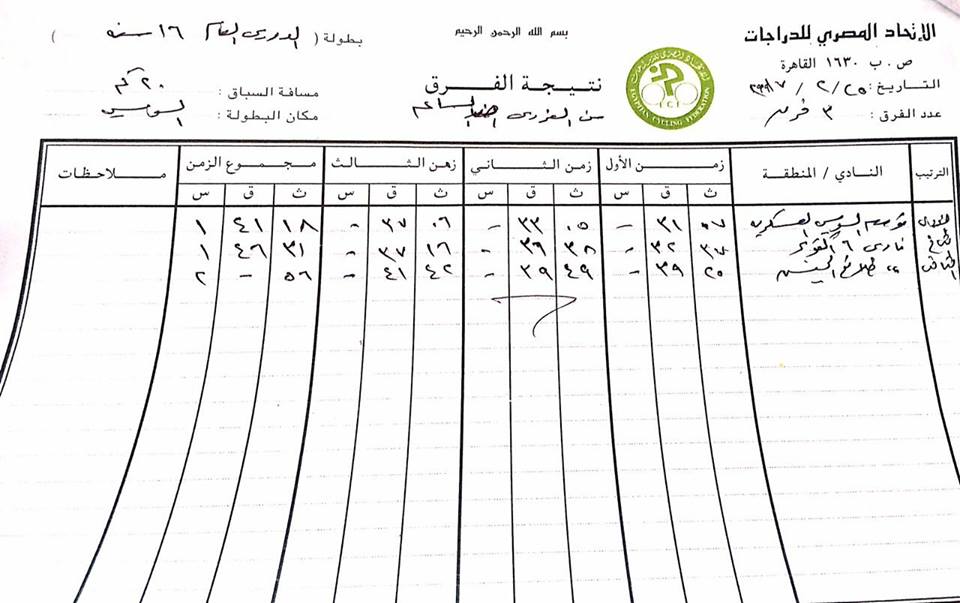 الإتحاد المصري للدراجات
ص . ب ١٦٣٠ القاهرة
التاريخ : ٢٥ / ٢ / ٢٠١٧
عدد الفرق : ٣ فرق
بسم الله الرحمن الرحيم
نتيجة الفرق
من الفردى
EGYPTIAN CYCLING FEDERATION
بطولة ( الدورى العام ١٦ سنه )
مسافة السباق : ٢٠ كم
مكان البطولة : السويس
الترتيب النادي / المنطقة زمن الأول زمن الثاني زمن الثالث مجموع الزمن ملاحظات
ث ق س ث ق س ث ق س ث ق س
الأول مؤسسة السويس العسكرية ٠٧ ٣١ - ٠٥ ٣٣ - ٠٦ ٣٧ - ١٨ ٤١ ١
نادى ٦ أكتوبر ٣٧ ٣٢ - ٣٨ ٣٦ - ١٦ ٣٧ - ٣١ ٤٦ ١
الثالث " طلائع الجيش ٢٥ ٣٩ - ٤٩ ٣٩ - ٤٢ ٤١ - ٥٦ - ٢